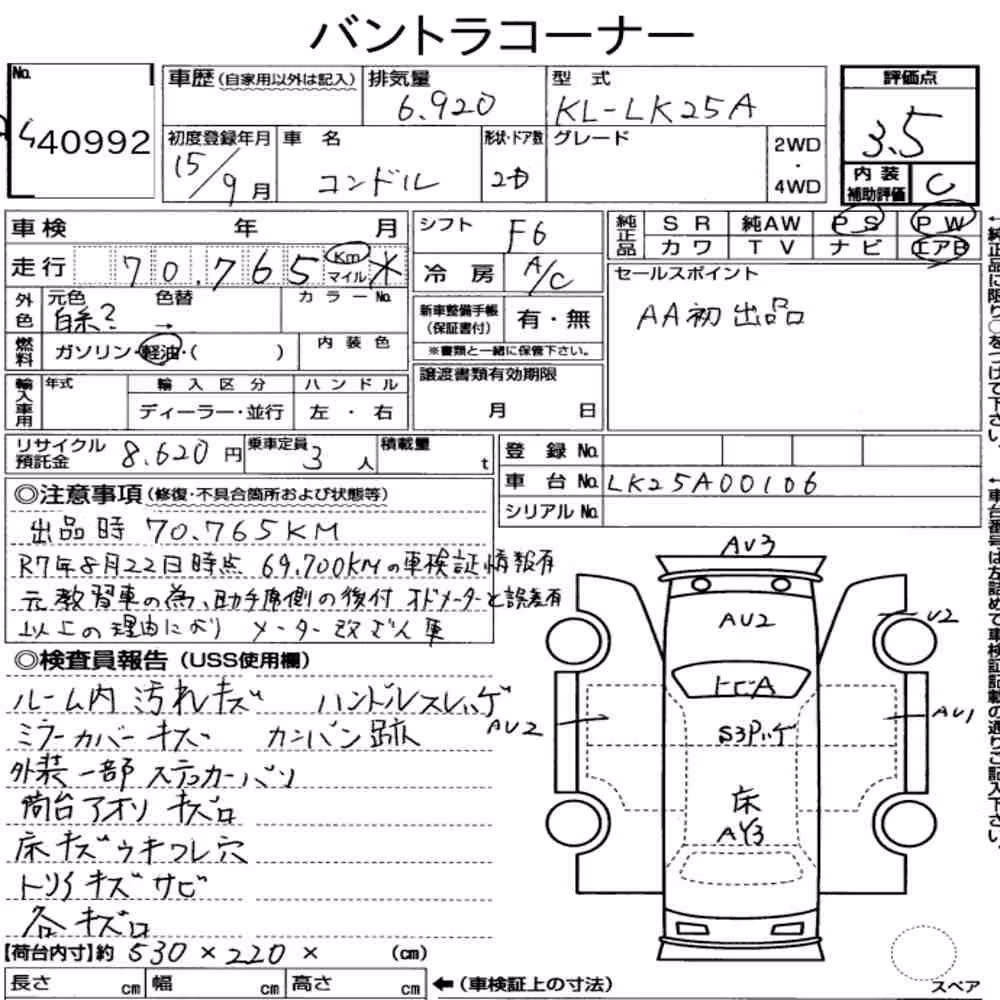 バントラコーナー
No.
40992
車歴 (自家用以外は記入)
排気量
6.920
型式
KL-LK25A
評価点
3.5
初度登録年月
15/9月
車名
コンドル
形状・ドア数
2D
グレード
2WD
・
4WD
内装
補助評価
C
車検 年 月
シフト
F6
純正品
SR 純AW PS PW
カワ TV ナビ エアB
走行 70.765 Km マイル *
冷房
A/C
セールスポイント
AA初出品
外色
元色 色替 カラーNo.
白系? →
新車整備手帳
(保証書付)
有・無
※書類と一緒に保管下さい。
燃料
ガソリン・軽油・( )
内装色
譲渡書類有効期限
月 日
輸入車用
年式
輸入区分
ディーラー・並行
ハンドル
左・右
←純正品に限り○をつけて下さい。
リサイクル
預託金
8.620円
乗車定員
3人
積載量
t
登録No.
車台No. LK25A00106
シリアルNo.
←車台番号は左詰めで車検証記載の通りご記入下さい。
◎注意事項 (修復・不具合箇所および状態等)
出品時 70.765KM
R7年8月22日時点 69,700KMの車検証情報有
元教習車の為、助手席側の後付オドメーターと誤差有
以上の理由により メーター改ざん車
◎検査員報告 (USS使用欄)
ルーム内 汚れキズ ハンドルスレハゲ
ミラーカバーキズ カンバン跡
外装一部ステッカーバリ
荷台アオリ キズロ
床キズウキワレ穴
トリイキズサビ
各キズロ
【荷台内寸】約 530×220× (cm)
長さ cm 幅 cm 高さ cm
←(車検証上の寸法)
AU3
AU2
U2
トビA
AU2
AU1
S3Pハゲ
床
AY3
スペア